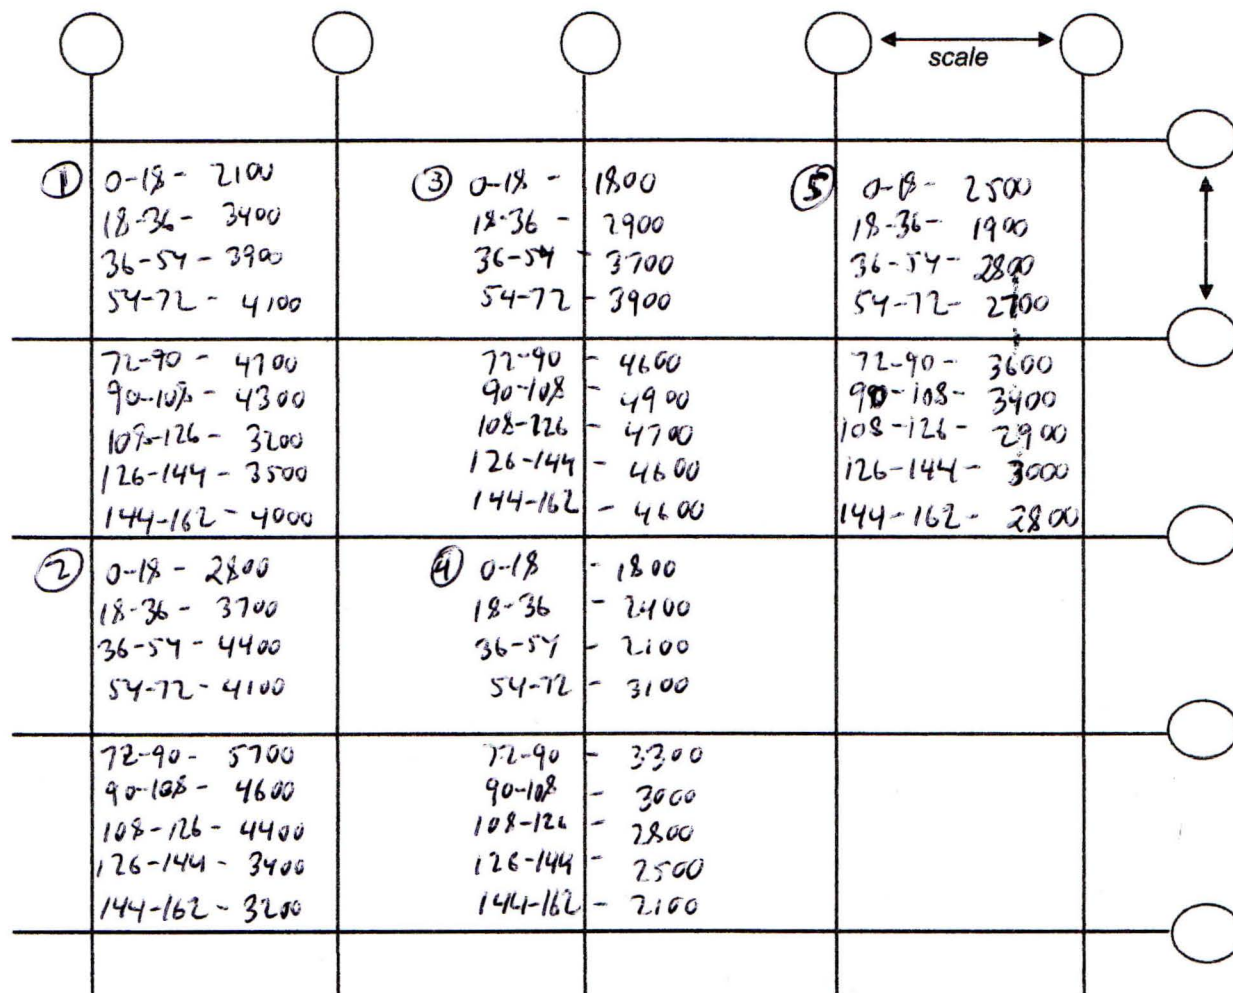 scale
① 0-18 - 2100
18-36 - 3400
36-54 - 3900
54-72 - 4100
72-90 - 4700
90-108 - 4300
108-126 - 3200
126-144 - 3500
144-162 - 4000
② 0-18 - 2800
18-36 - 3700
36-54 - 4400
54-72 - 4100
72-90 - 5700
90-108 - 4600
108-126 - 4400
126-144 - 3400
144-162 - 3200
③ 0-18 - 1800
18-36 - 2900
36-54 - 3700
54-72 - 3900
72-90 - 4600
90-108 - 4900
108-126 - 4700
126-144 - 4600
144-162 - 4600
④ 0-18 - 1800
18-36 - 2400
36-54 - 2100
54-72 - 3100
72-90 - 3300
90-108 - 3000
108-126 - 2800
126-144 - 2500
144-162 - 2100
⑤ 0-18 - 2500
18-36 - 1900
36-54 - 2800
54-72 - 2700
72-90 - 3600
90-108 - 3400
108-126 - 2900
126-144 - 3000
144-162 - 2800